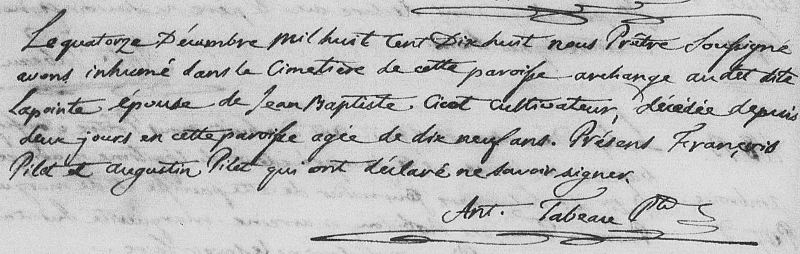 Le quatorze Décembre Mil huit Cent Dix huit nous Prêtre Soussigné
avons inhumé dans le Cimetière de cette paroisse archange audet dite
Lapointe épouse de Jean Baptiste Cicot Cultivateur, décédée depuis
deux jours en cette paroisse agée de dix neuf ans. Présens François
Pilet et augustin Pilet qui ont déclaré ne savoir signer.
Ant. Tabeau Ptre